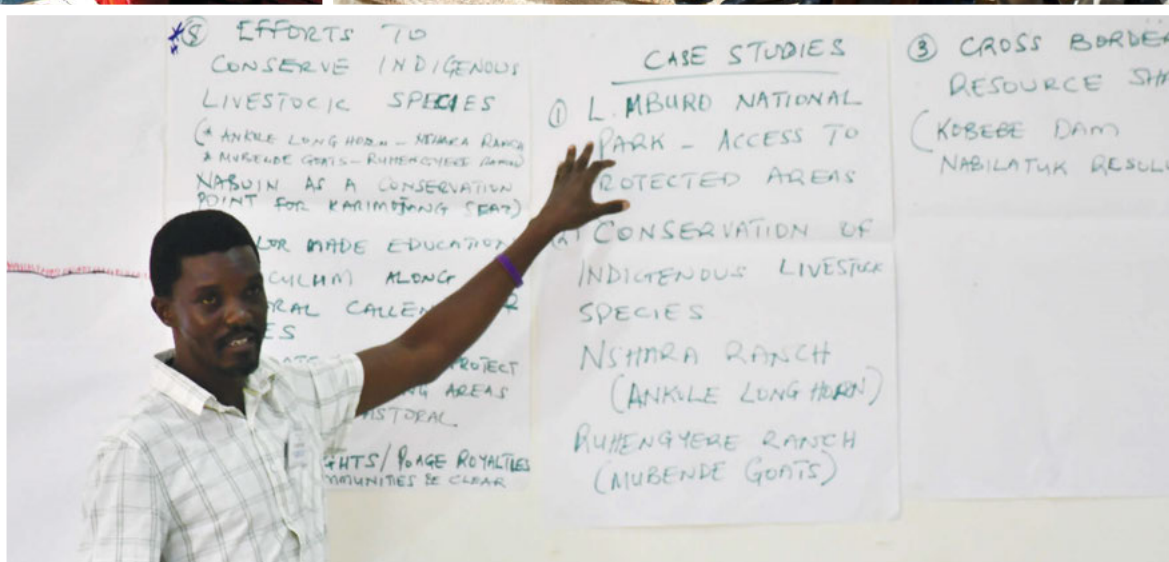 ⑧ EFFORTS TO
CONSERVE INDIGENOUS
LIVESTOCK SPECIES
(* ANKOLE LONG HORN - NSHARA RANCH
* MUBENDE GOATS - RUHENGYERE RANCH
NABUIN AS A CONSERVATION
POINT FOR KARIMOJANG SEAZ)
LOR MADE EDUCATION
CULUM ALONG
RAL CALLEN R
ES
ROTECT
NG AREAS
ASTORAL
GHTS/POAGE ROYALTIES
MMUNITIES BE CLEAR
CASE STUDIES
① L. MBURO NATIONAL
PARK - ACCESS TO
ROTECTED AREAS
CONSERVATION OF
INDIGENOUS LIVESTOCK
SPECIES
NSHARA RANCH
(ANKOLE LONG HORN)
RUHENGYERE RANCH
(MUBENDE GOATS)
③ CROSS BORDER
RESOURCE SHA
(KOBEBE DAM
NABILATUK RESOLU